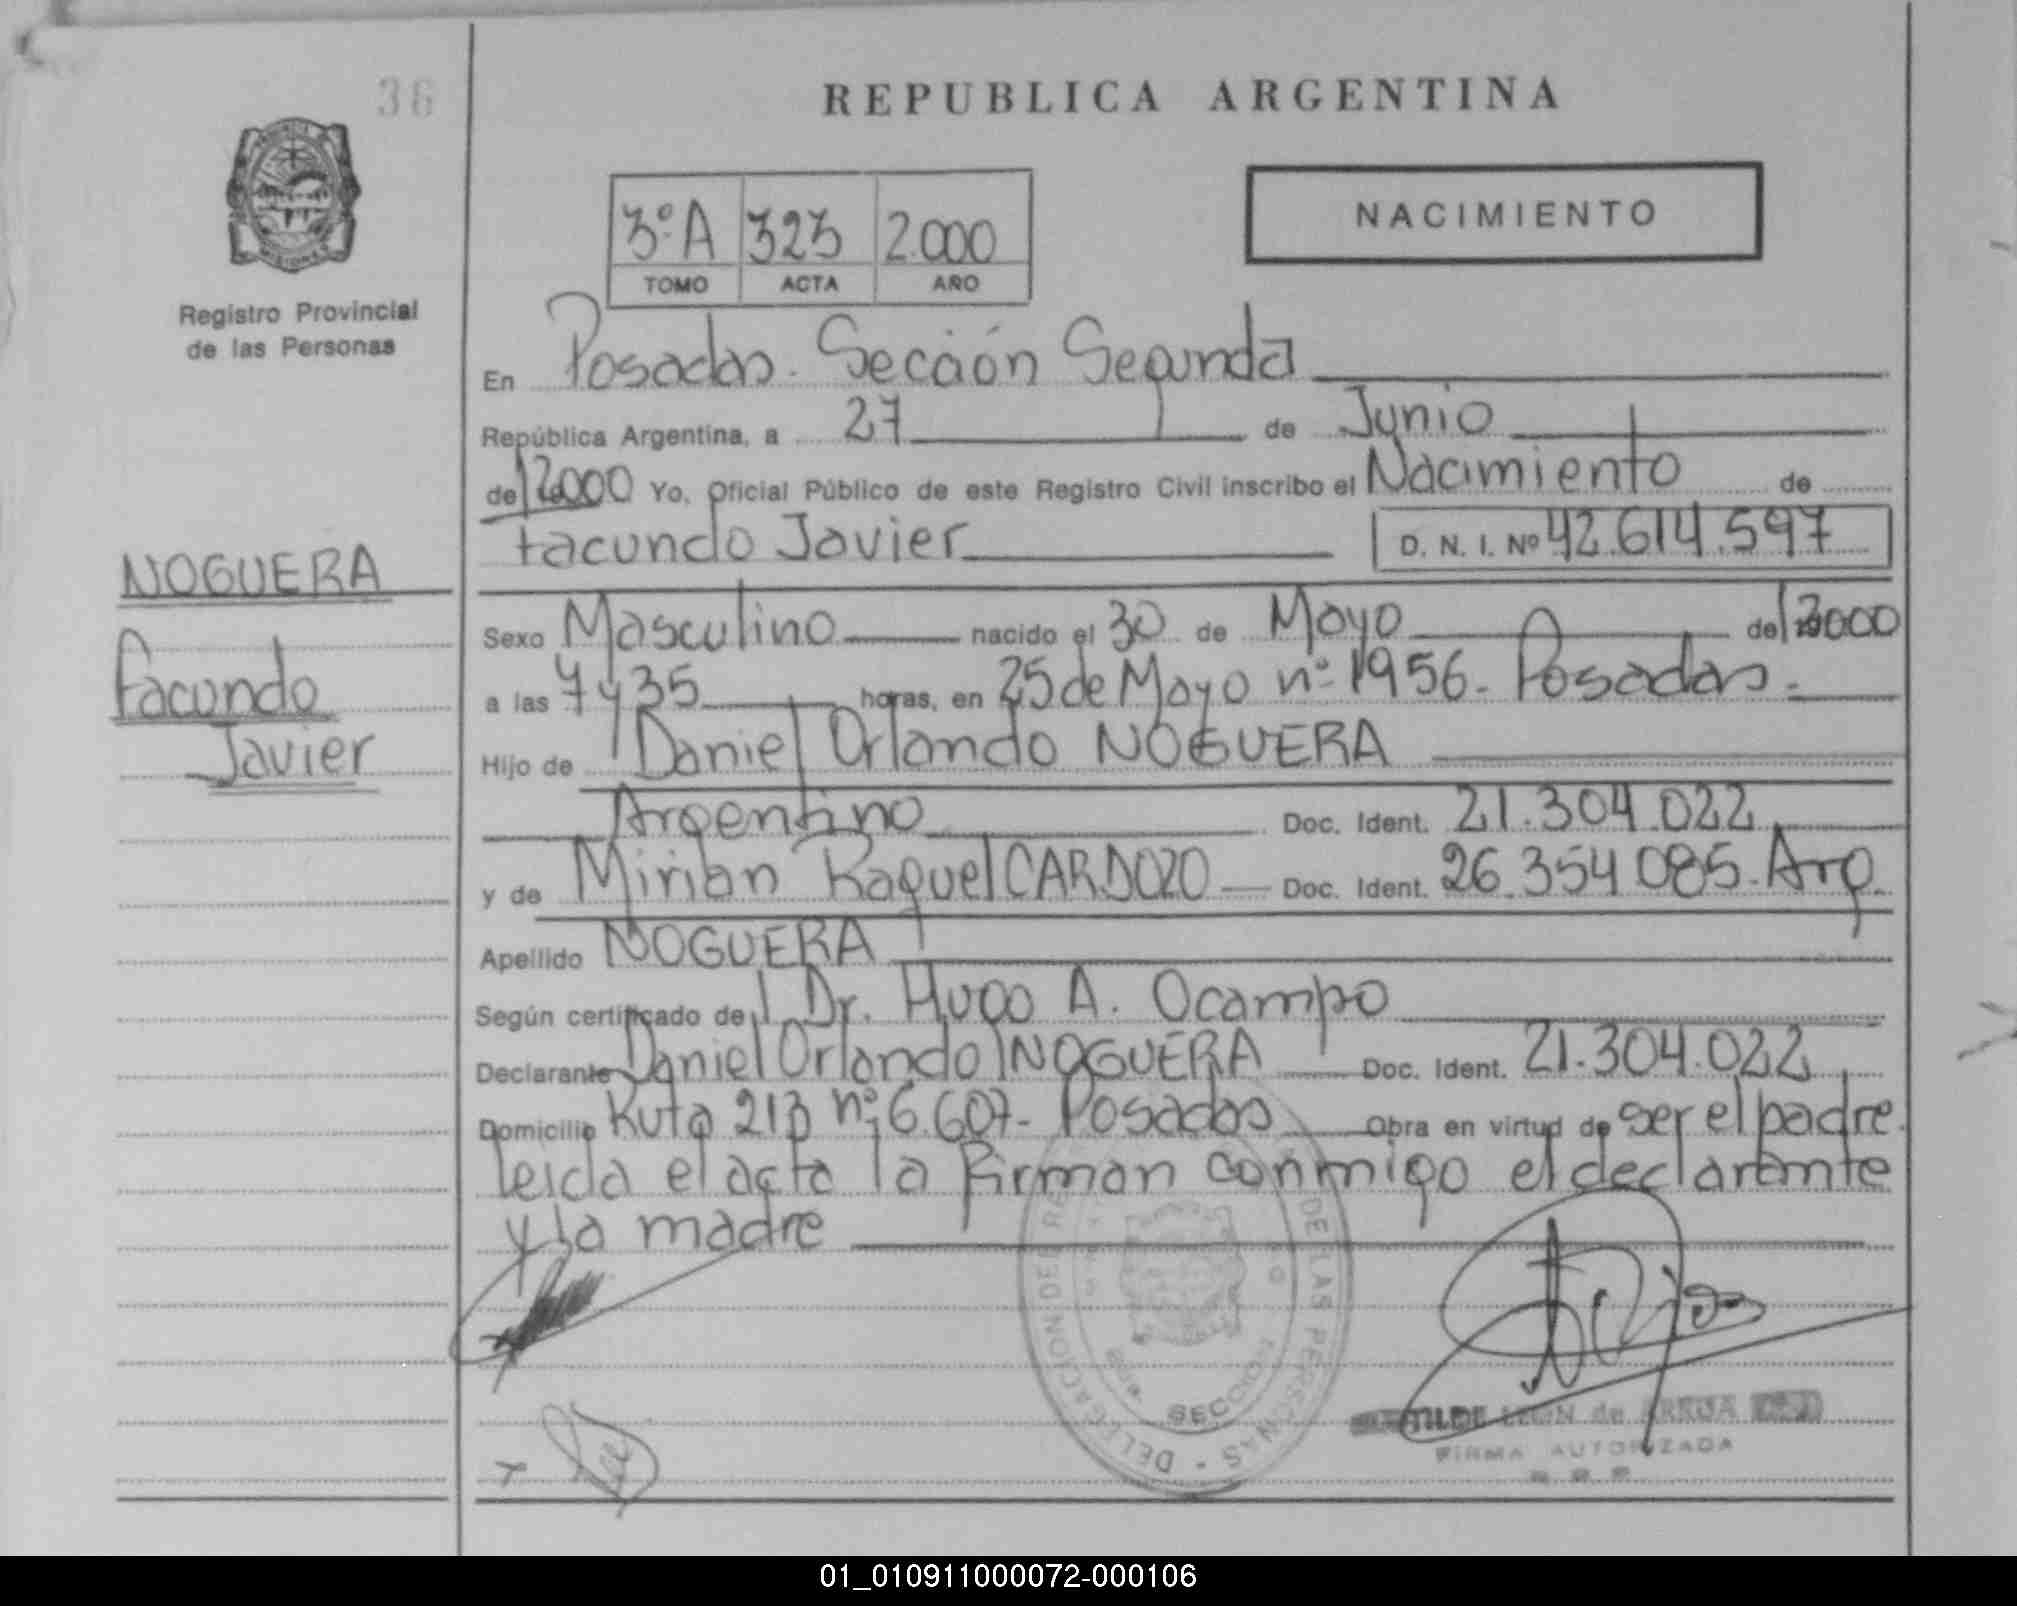 36
REPUBLICA ARGENTINA
NACIMIENTO
3º A 323 2.000
TOMO ACTA AÑO
Registro Provincial
de las Personas
En Posadas. Sección Segunda
República Argentina, a 27 de Junio
de 2000 Yo, Oficial Público de este Registro Civil inscribo el Nacimiento de
Facundo Javier D. N. I. Nº 42.614.597
NOGUERA
Facundo
Javier
Sexo Masculino nacido el 30 de Mayo de 2000
a las 7 y 35 horas, en 25 de Mayo nº 1956. Posadas.
Hijo de Daniel Orlando NOGUERA
Argentino Doc. Ident. 21.304.022
y de Mirian Raquel CARDOZO Doc. Ident. 26.354.085. Arg.
Apellido NOGUERA
Según certificado del Dr. Hugo A. Ocampo
Declarante Daniel Orlando NOGUERA Doc. Ident. 21.304.022
Domicilio Ruta 213 nº 6.607. Posadas Obra en virtud de ser el padre.
leida el acta la firman conmigo el declarante
y la madre
DE LAS PERSONAS - DELEGACION DEL
SECCION
LEON de
FIRMA AUTORIZADA
01_010911000072-000106